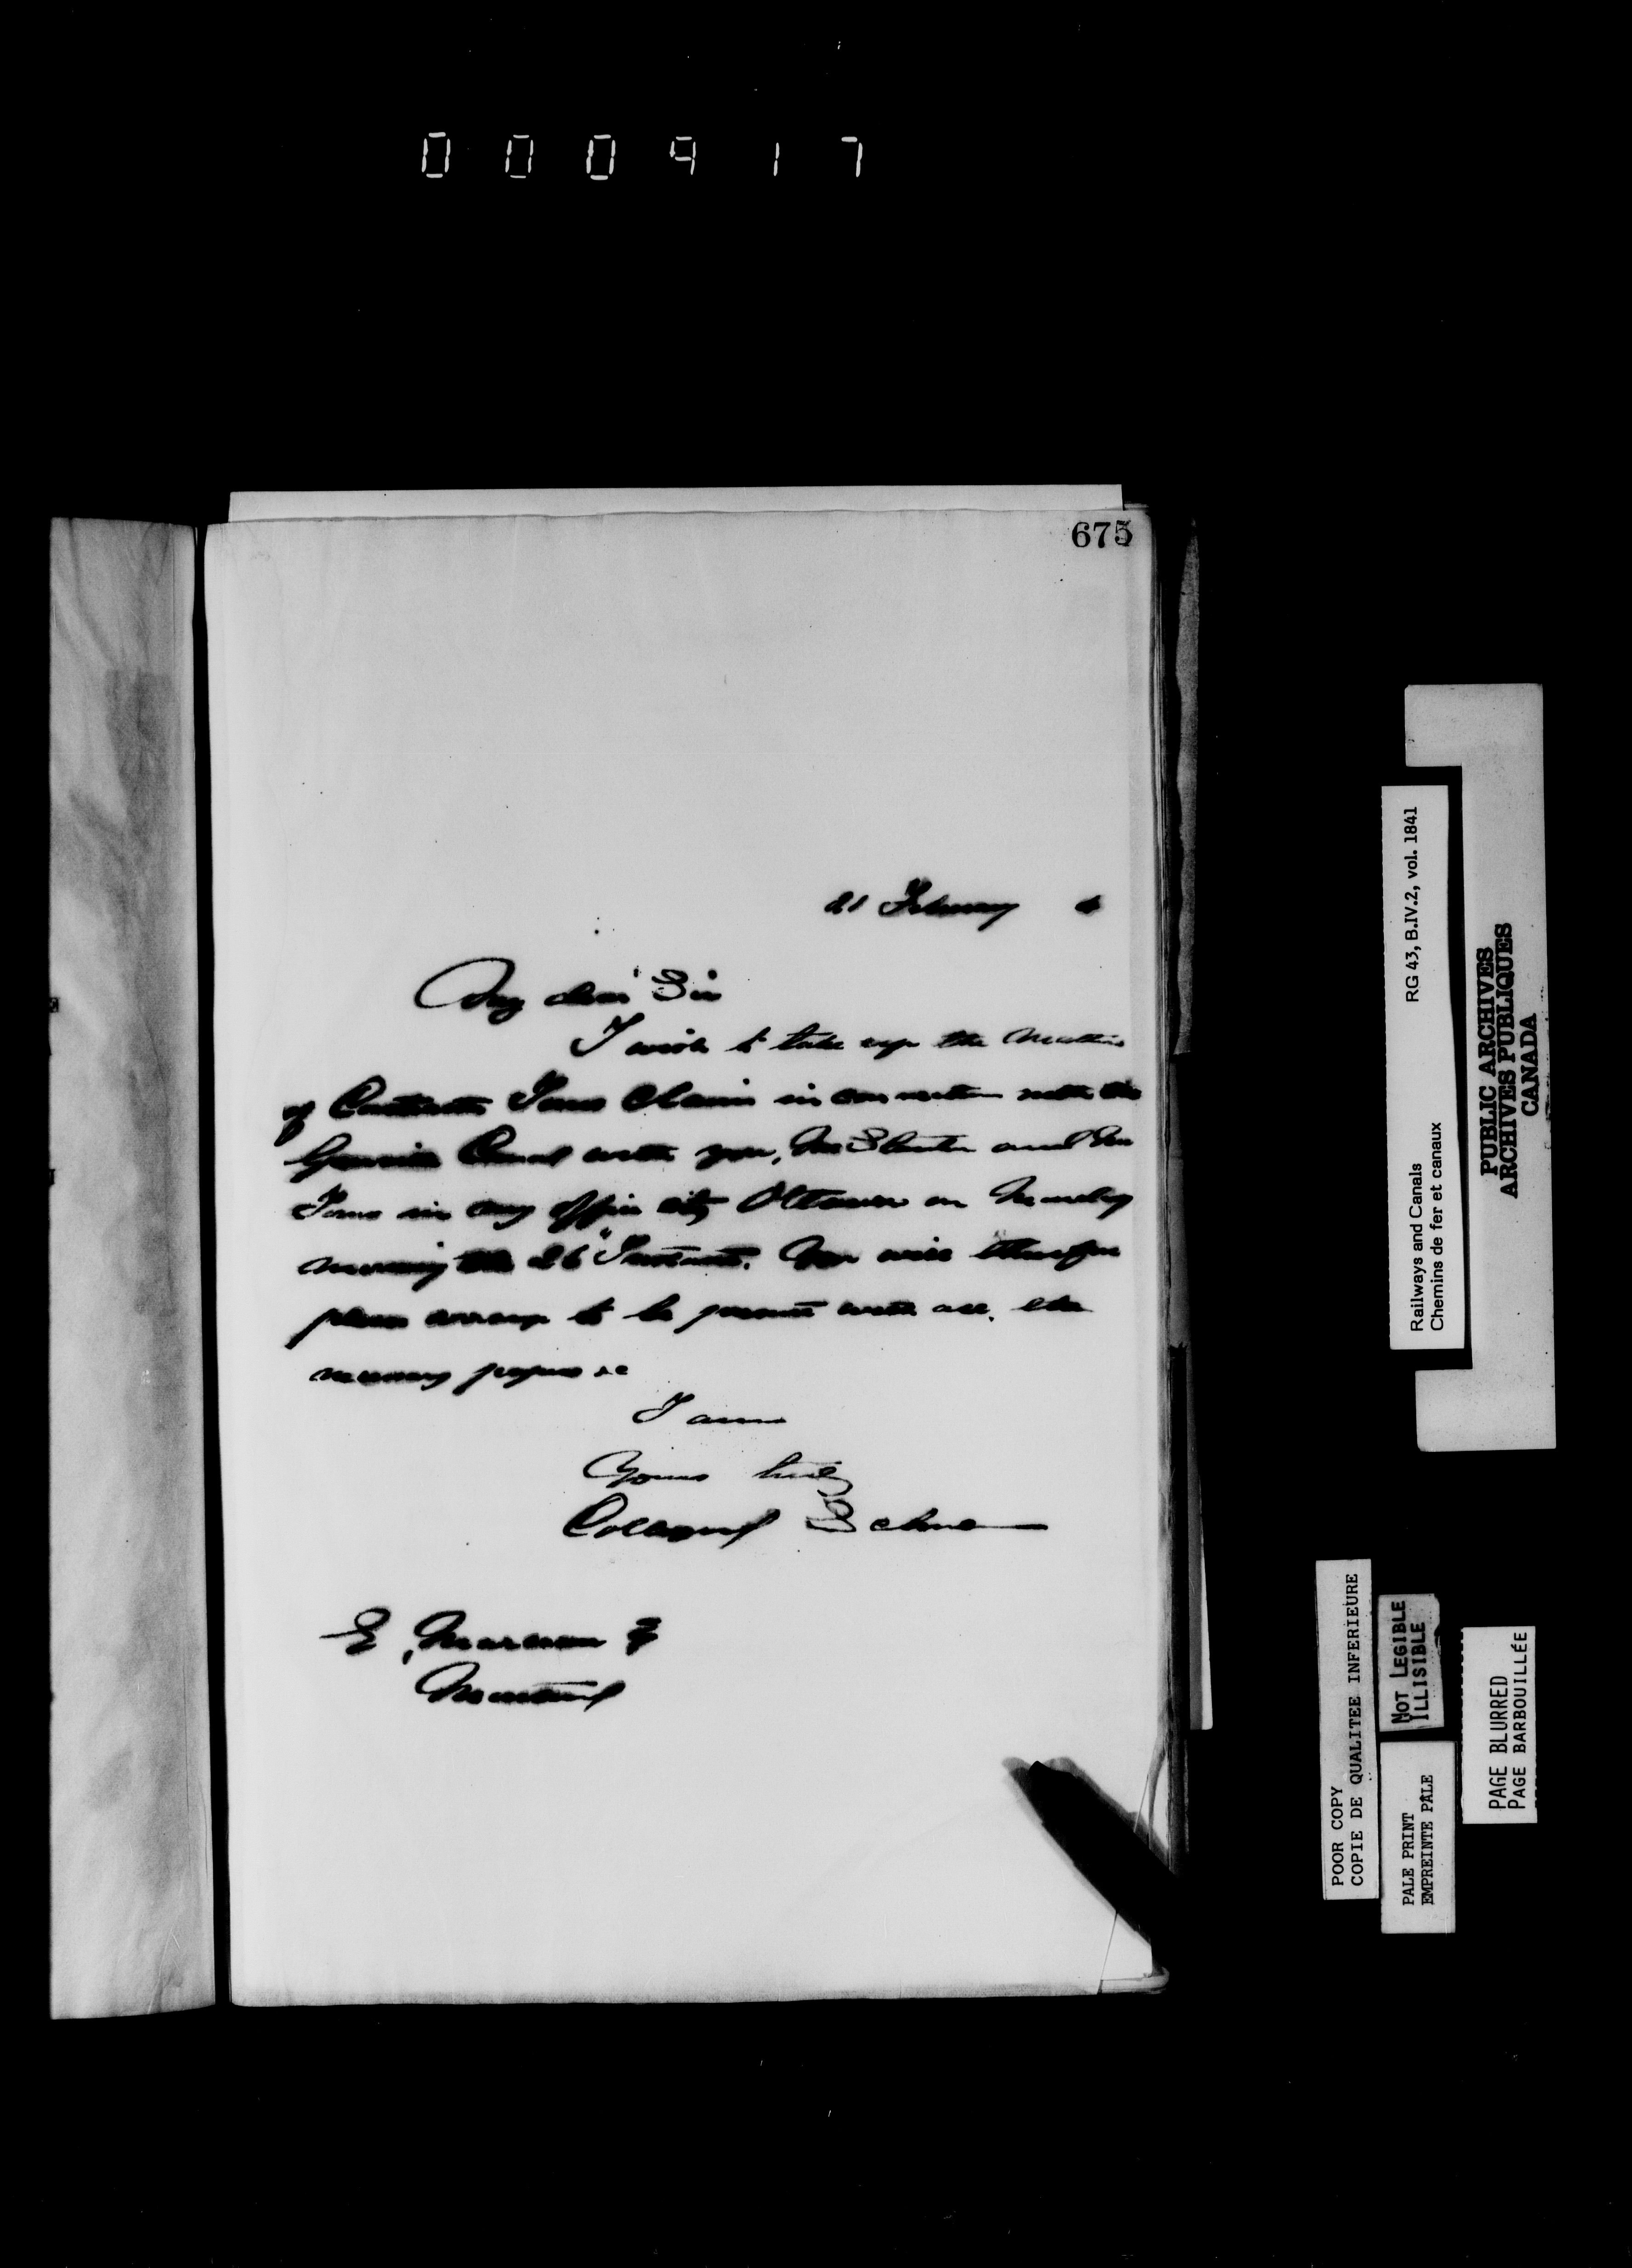 000917
675
21 February
My dear Sir
I wish to take up the matter
of Contractor claim in connection with the
Canal with you, Mr and Mr
in my office city Ottawa on Monday
morning the 26" Instant. You will therefore
please arrange to be present with all the
necessary papers &c
I am
Yours truly
Collingwood Schreiber
E. Marceau Esq
Montreal
Railways and Canals RG 43, B.IV.2, vol. 1841
Chemins de fer et canaux
PUBLIC ARCHIVES
ARCHIVES PUBLIQUES
CANADA
POOR COPY
COPIE DE QUALITEE INFERIEURE
NOT LEGIBLE
ILLISIBLE
PALE PRINT
EMPREINTE PALE
PAGE BLURRED
PAGE BARBOUILLÉE